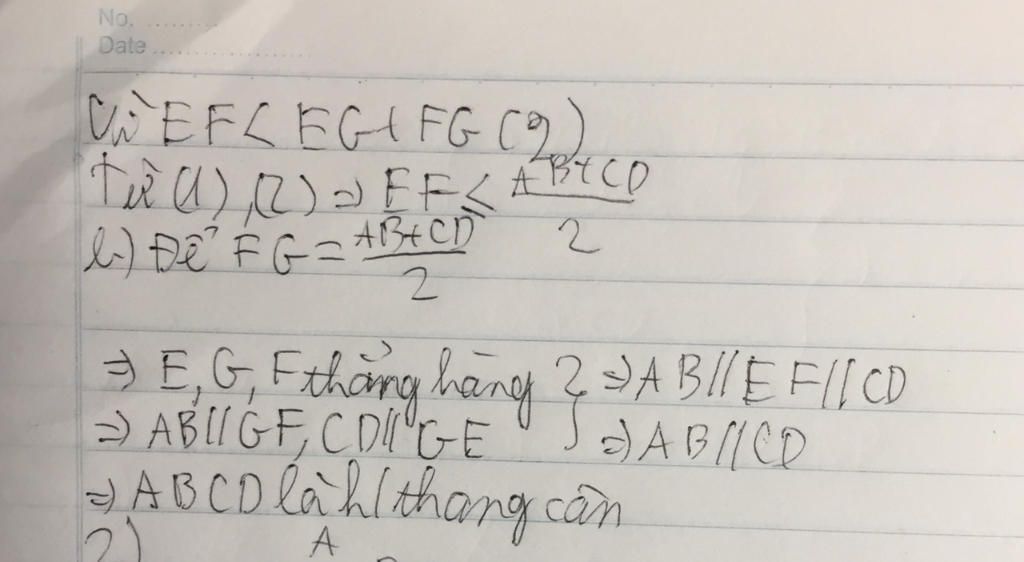 No. ............
Date ........................
Và EF < EG + FG (2)
Từ (1), (2) ⇒ EF ≤ AB+CD / 2
b.) Để FG = AB+CD / 2
⇒ E, G, F thẳng hàng } ⇒ AB // EF // CD
⇒ AB // GF, CD // GE } ⇒ AB // CD
⇒ ABCD là h/thang cân
2)
A